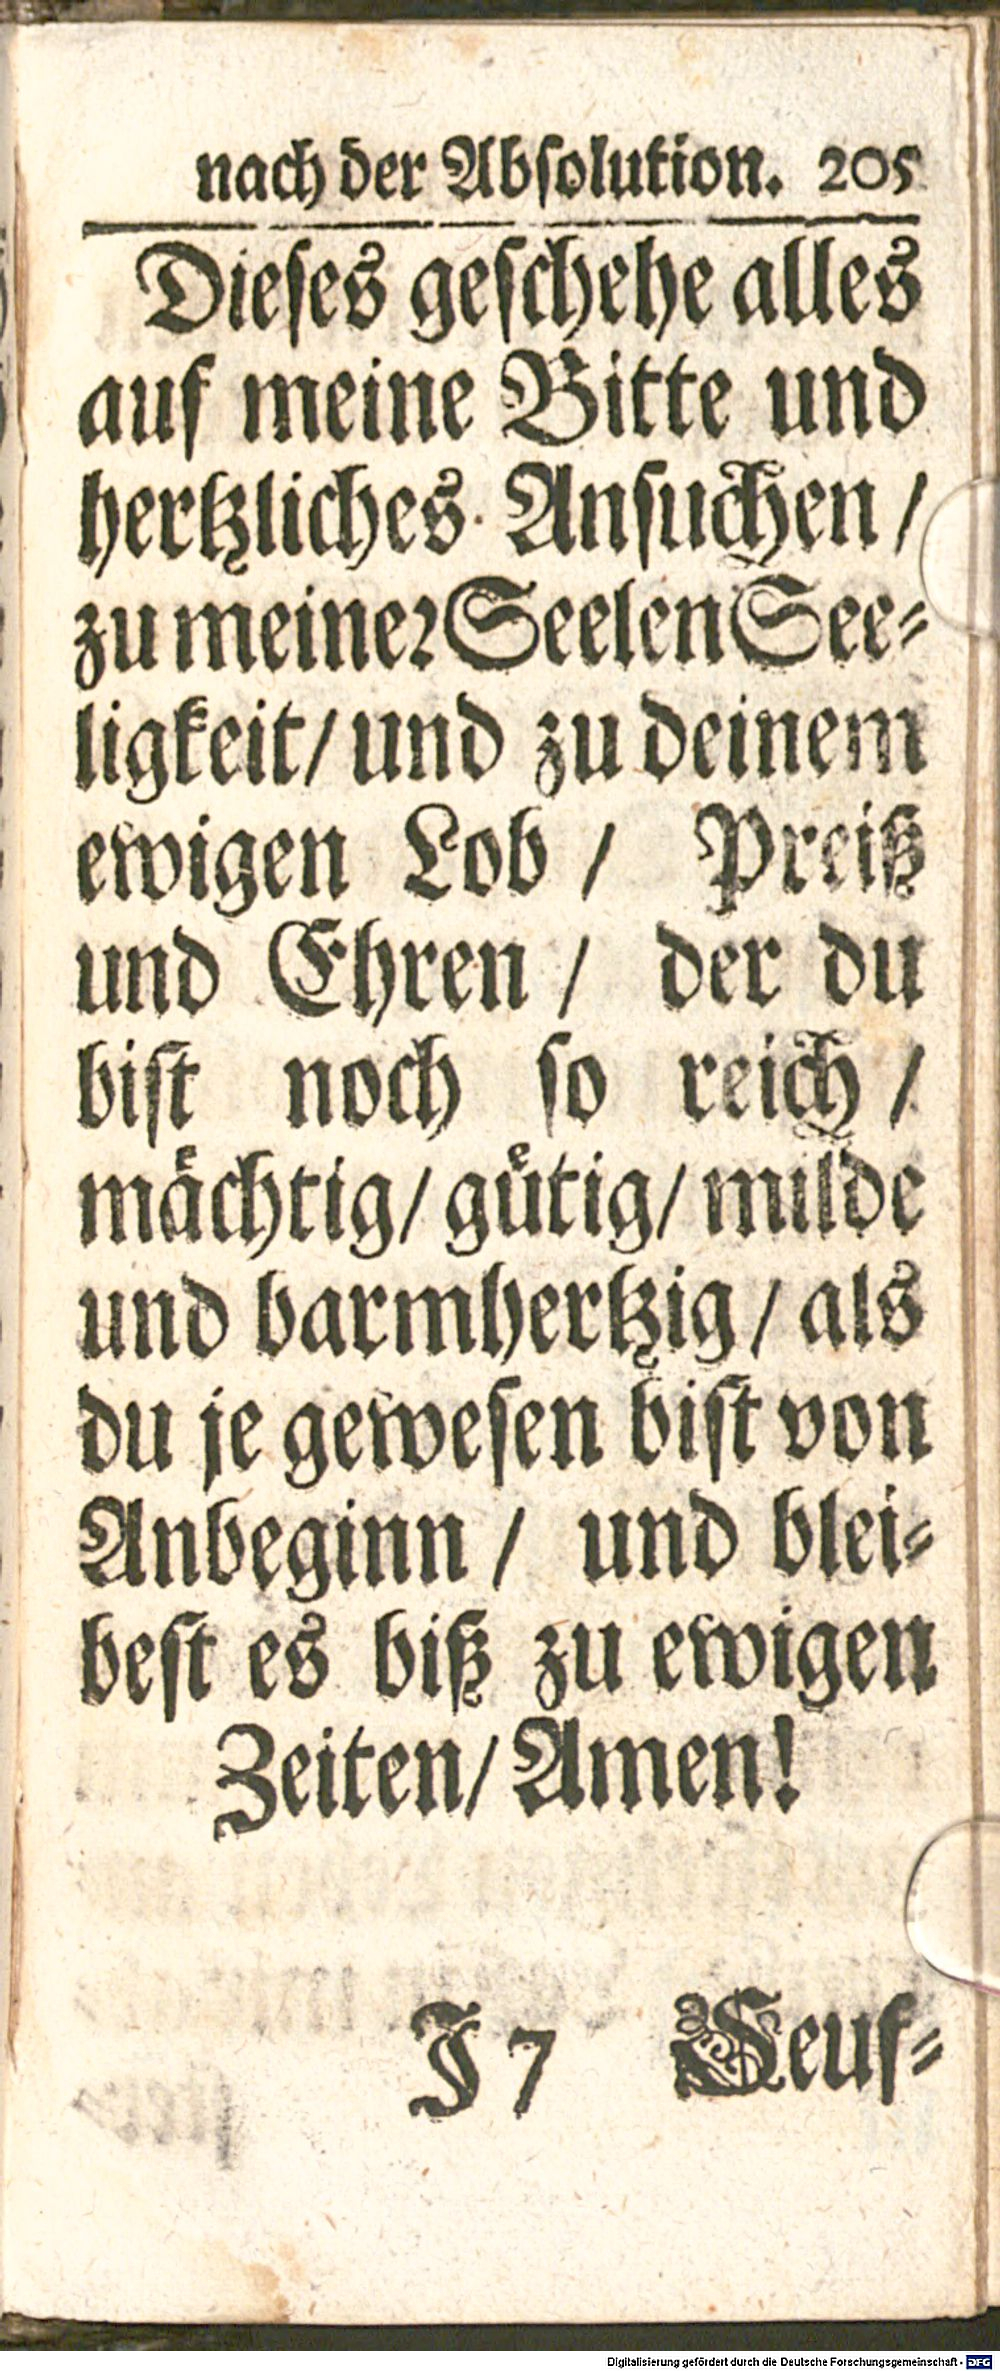 nach der Absolution. 205
Dieses geschehe alles
auf meine Bitte und
hertzliches Ansuchen /
zu meiner Seelen See-
ligkeit / und zu deinem
ewigen Lob / Preiß
und Ehren / der du
bist noch so reich /
mächtig / gütig / milde
und barmhertzig / als
du je gewesen bist von
Anbeginn / und blei-
best es biß zu ewigen
Zeiten / Amen!
J 7 Seuf-
Digitalisierung gefördert durch die Deutsche Forschungsgemeinschaft - DFG